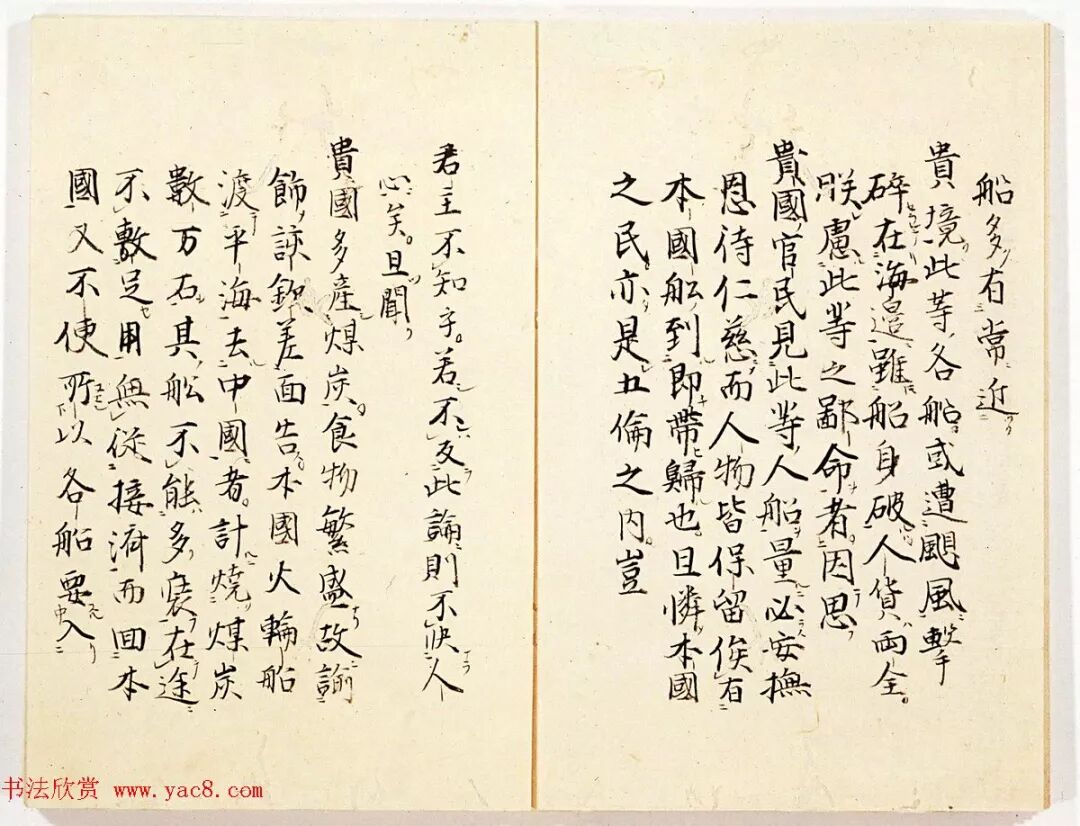 船多有常近
貴境此等各船或遭颶風擊
碎在海邉雖船身破人貨両全
朕慮此等之鄙命者因思
貴國官民見此等人船量必安撫
恩待仁慈而人物皆保留俟有
本國舩到即帶歸也且憐本國
之民亦是五倫之内豈
君主不知乎若不反此論則不快人
心矣且聞
貴國多產煤炭食物繁盛故諭
飾諒欽差面告本國火輪船
渡平海去中國者計燒煤炭
數万石其舩不能多裝在途
不敷足用無從接濟而回本
國又不使所以各船要入
书法欣赏 www.yac8.com